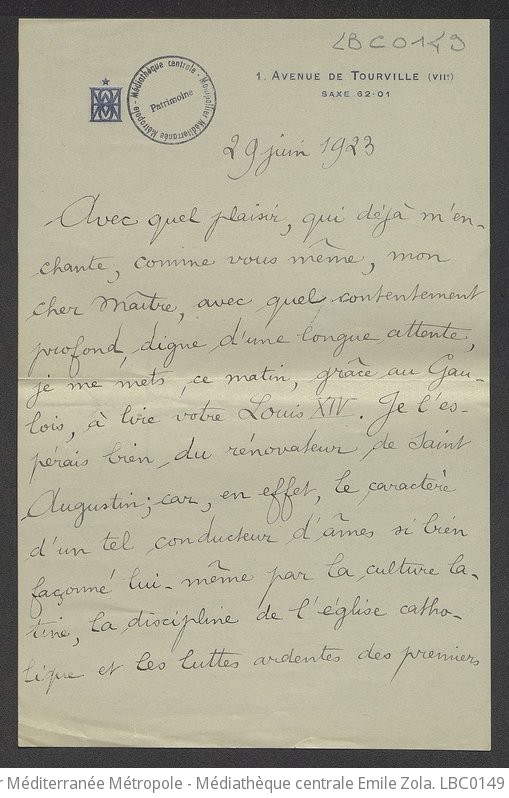 LBC0149
1. AVENUE DE TOURVILLE (VIIe)
SAXE 62-01
Médiathèque centrale - Montpellier Méditerranée Métropole -
Patrimoine
29 juin 1923
Avec quel plaisir, qui déjà m'en-
chante, comme vous même, mon
cher Maître, avec quel contentement
profond, digne d'une longue attente,
je me mets, ce matin, grâce au Gau-
lois, à lire votre Louis XIV. Je l'es-
pérais bien du rénovateur de Saint
Augustin; car, en effet, le caractère
d'un tel conducteur d'âmes si bien
façonné lui-même par la culture la-
tine, la discipline de l'église catho-
lique et les luttes ardentes des premiers
r Méditerranée Métropole - Médiathèque centrale Emile Zola. LBC0149